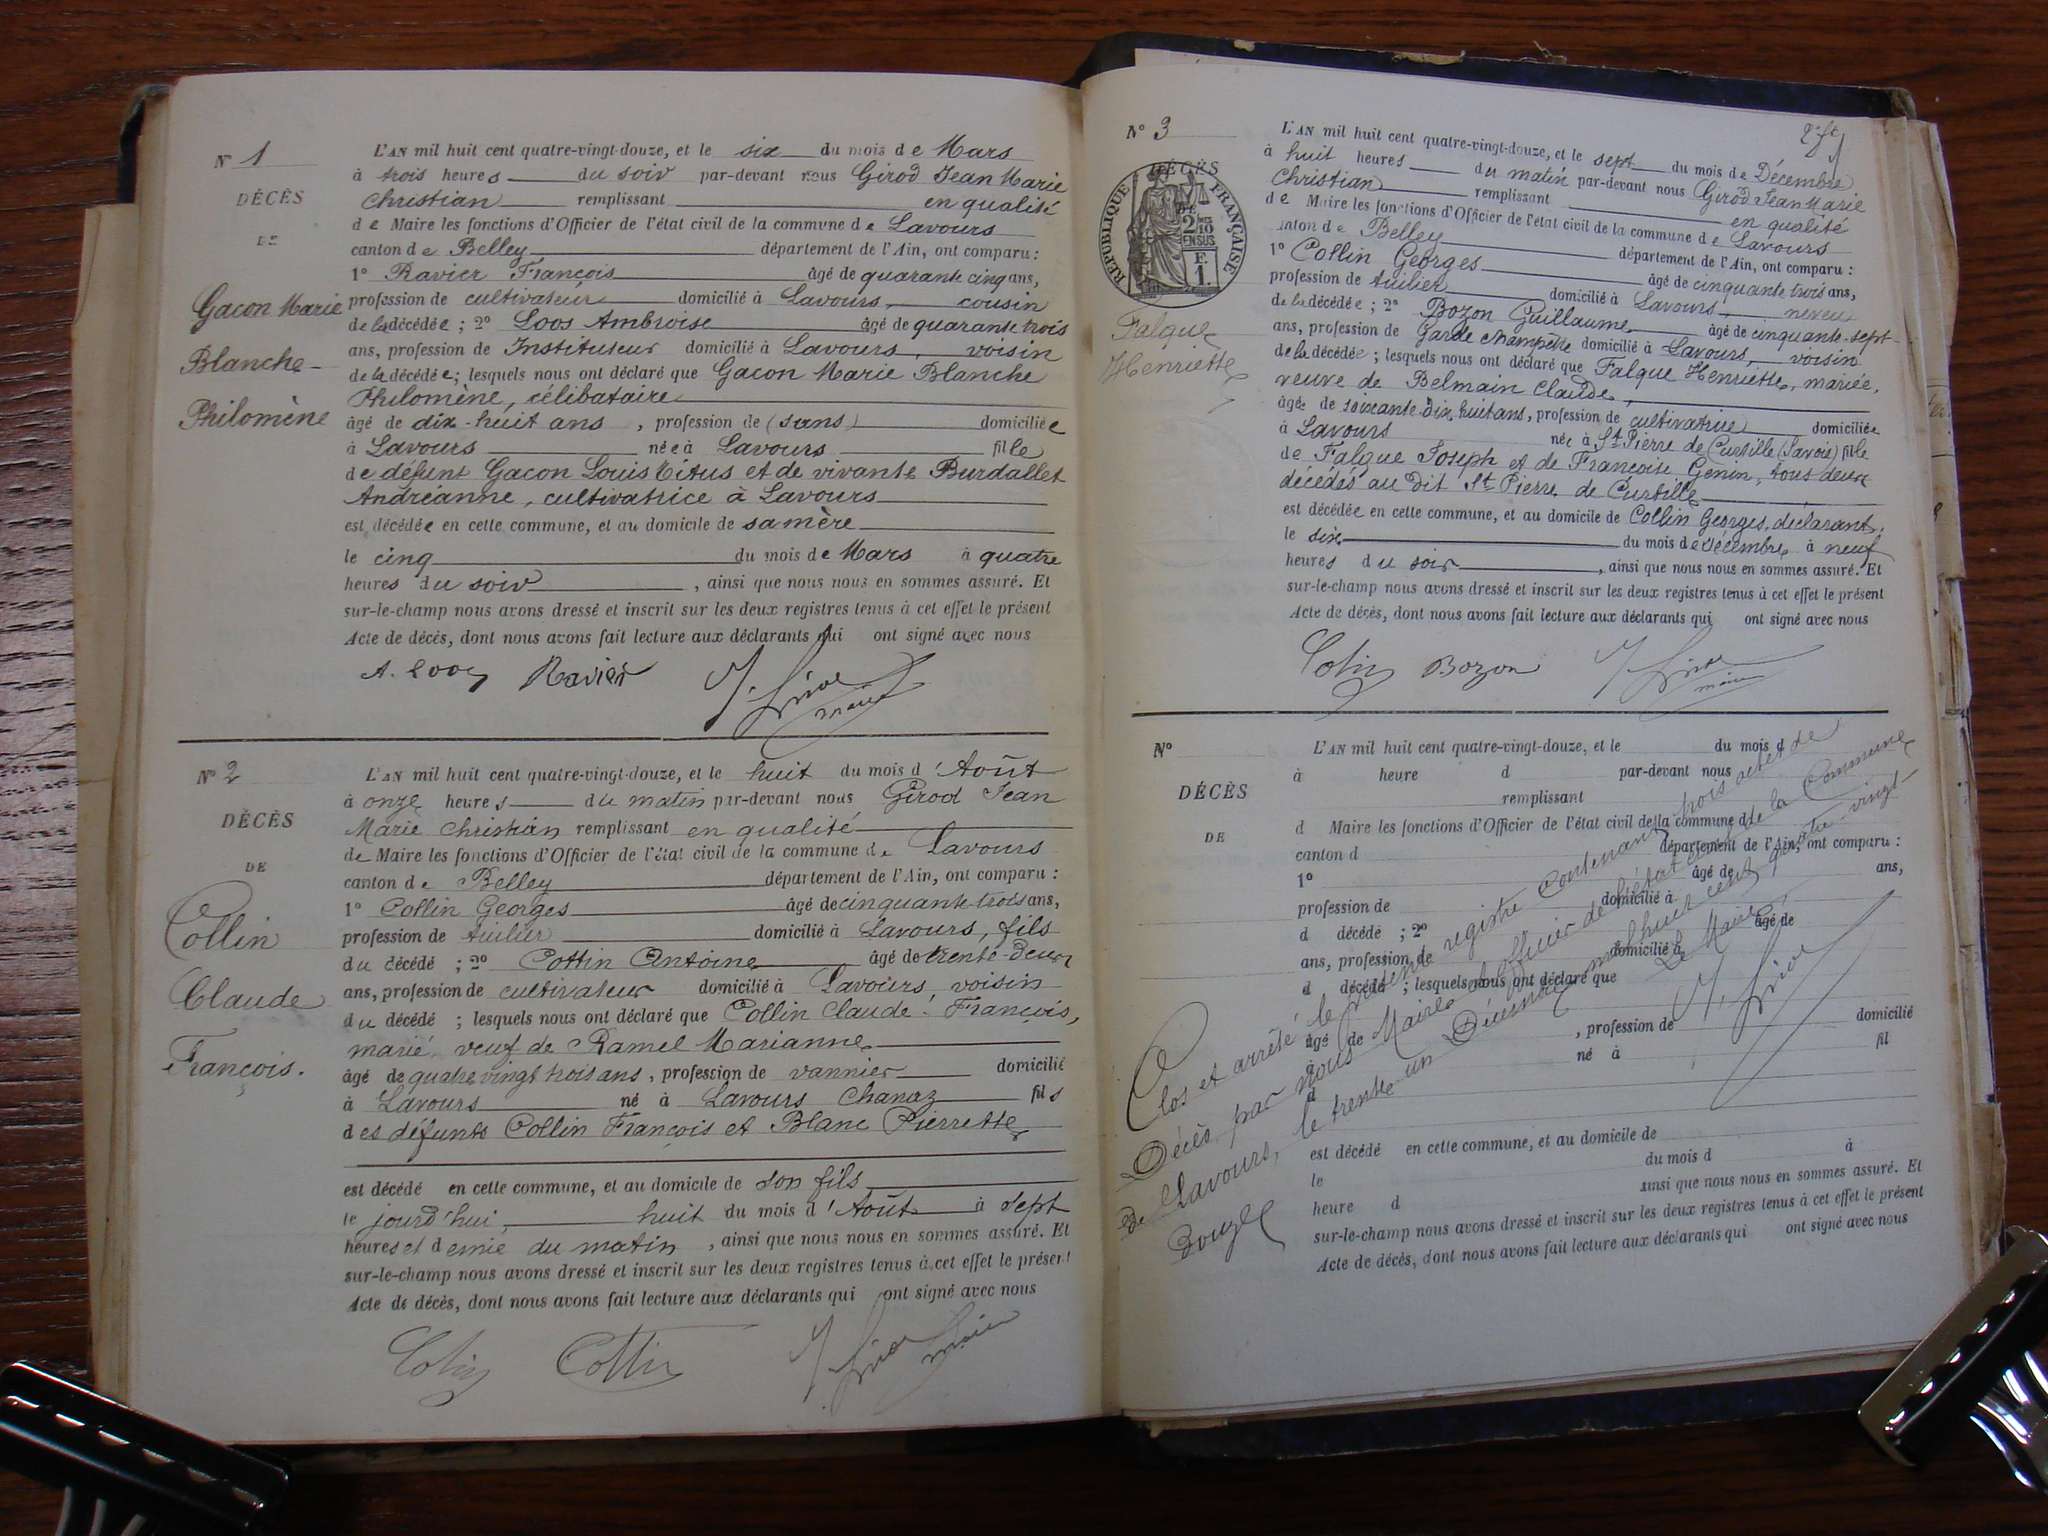 N° 1
DÉCÈS
DE
Gacon Marie
Blanche-
Philomène
L'AN mil huit cent quatre-vingt-douze, et le six du mois de Mars
à trois heures du soir par-devant nous Girod Jean Marie
Christian remplissant en qualité
de Maire les fonctions d'Officier de l'état civil de la commune de Lavours
canton de Belley département de l'Ain, ont comparu :
1° Ravier François âgé de quarante cinq ans,
profession de cultivateur domicilié à Lavours, cousin
de la décédée ; 2° Loos Ambroise âgé de quarante trois
ans, profession de Instituteur domicilié à Lavours, voisin
de la décédée ; lesquels nous ont déclaré que Gacon Marie Blanche
Philomène, célibataire
âgé de dix-huit ans , profession de (sans) domiciliée
à Lavours née à Lavours fille
de défunt Gacon Louis Titus et de vivante Burdallet
Andréanne, cultivatrice à Lavours
est décédée en cette commune, et au domicile de sa mère
le cinq du mois de Mars à quatre
heures du soir , ainsi que nous nous en sommes assuré. Et
sur-le-champ nous avons dressé et inscrit sur les deux registres tenus à cet effet le présent
Acte de décès, dont nous avons fait lecture aux déclarants qui ont signé avec nous
A. Loos Ravier J. Girod
maire
N° 2
DÉCÈS
DE
Collin
Claude
François.
L'AN mil huit cent quatre-vingt-douze, et le huit du mois d'Août
à onze heures du matin par-devant nous Girod Jean
Marie Christian remplissant en qualité
de Maire les fonctions d'Officier de l'état civil de la commune de Lavours
canton de Belley département de l'Ain, ont comparu :
1° Collin Georges âgé de cinquante-trois ans,
profession de tuilier domicilié à Lavours, fils
du décédé ; 2° Cottin Antoine âgé de trente-deux
ans, profession de cultivateur domicilié à Lavours, voisin
du décédé ; lesquels nous ont déclaré que Collin Claude-François,
marié, veuf de Ramel Marianne
âgé de quatre vingt trois ans, profession de vannier domicilié
à Lavours né à Lavours Chanaz fils
des défunts Collin François et Blanc Pierrette
est décédé en cette commune, et au domicile de son fils
le jourd'hui, huit du mois d'Août à sept
heures et demie du matin , ainsi que nous nous en sommes assuré. Et
sur-le-champ nous avons dressé et inscrit sur les deux registres tenus à cet effet le présent
Acte de décès, dont nous avons fait lecture aux déclarants qui ont signé avec nous
Colin Cottin J. Girod maire
N° 3
DÉCÈS
RÉPUBLIQUE FRANÇAISE
2/10 EN SUS
F. 1.
Falque
Henriette
L'AN mil huit cent quatre-vingt-douze, et le sept du mois de Décembre
à huit heures du matin par-devant nous Girod Jean Marie
Christian remplissant en qualité
de Maire les fonctions d'Officier de l'état civil de la commune de Lavours
canton de Belley département de l'Ain, ont comparu :
1° Collin Georges âgé de cinquante trois ans,
profession de tuilier domicilié à Lavours, neveu
de la décédée ; 2° Bozon Guillaume âgé de cinquante-sept-
ans, profession de Garde champêtre domicilié à Lavours, voisin
de la décédée ; lesquels nous ont déclaré que Falque Henriette, mariée,
veuve de Belmain Claude,
âgée de soixante-dix huit ans, profession de cultivatrice domiciliée
à Lavours née à St Pierre de Curtille (Savoie) fille
de Falque Joseph et de Françoise Genin, tous deux
décédés au dit St Pierre de Curtille
est décédée en cette commune, et au domicile de Collin Georges, déclarant,
le six du mois de Décembre à neuf
heures du soir , ainsi que nous nous en sommes assuré. Et
sur-le-champ nous avons dressé et inscrit sur les deux registres tenus à cet effet le présent
Acte de décès, dont nous avons fait lecture aux déclarants qui ont signé avec nous
Colin Bozon J. Girod
maire
N°
DÉCÈS
DE
L'AN mil huit cent quatre-vingt-douze, et le du mois d
à heure d par-devant nous
remplissant
d Maire les fonctions d'Officier de l'état civil de la commune d
canton d département de l'Ain, ont comparu :
1° âgé de ans,
profession de domicilié à
d décédé ; 2° âgé de
ans, profession de domicilié à
d décédé ; lesquels nous ont déclaré que
âgé de , profession de domicilié
à né à fil
d
est décédé en cette commune, et au domicile de
le du mois d à
heure d ainsi que nous nous en sommes assuré. Et
sur-le-champ nous avons dressé et inscrit sur les deux registres tenus à cet effet le présent
Acte de décès, dont nous avons fait lecture aux déclarants qui ont signé avec nous
Clos et arrêté le présent registre contenant trois actes de
Décès par nous Maire et officier de l'état civil de la Commune
de Lavours, le trente-un Décembre mil huit cent quatre-vingt-
Douze
Le Maire
J. Girod